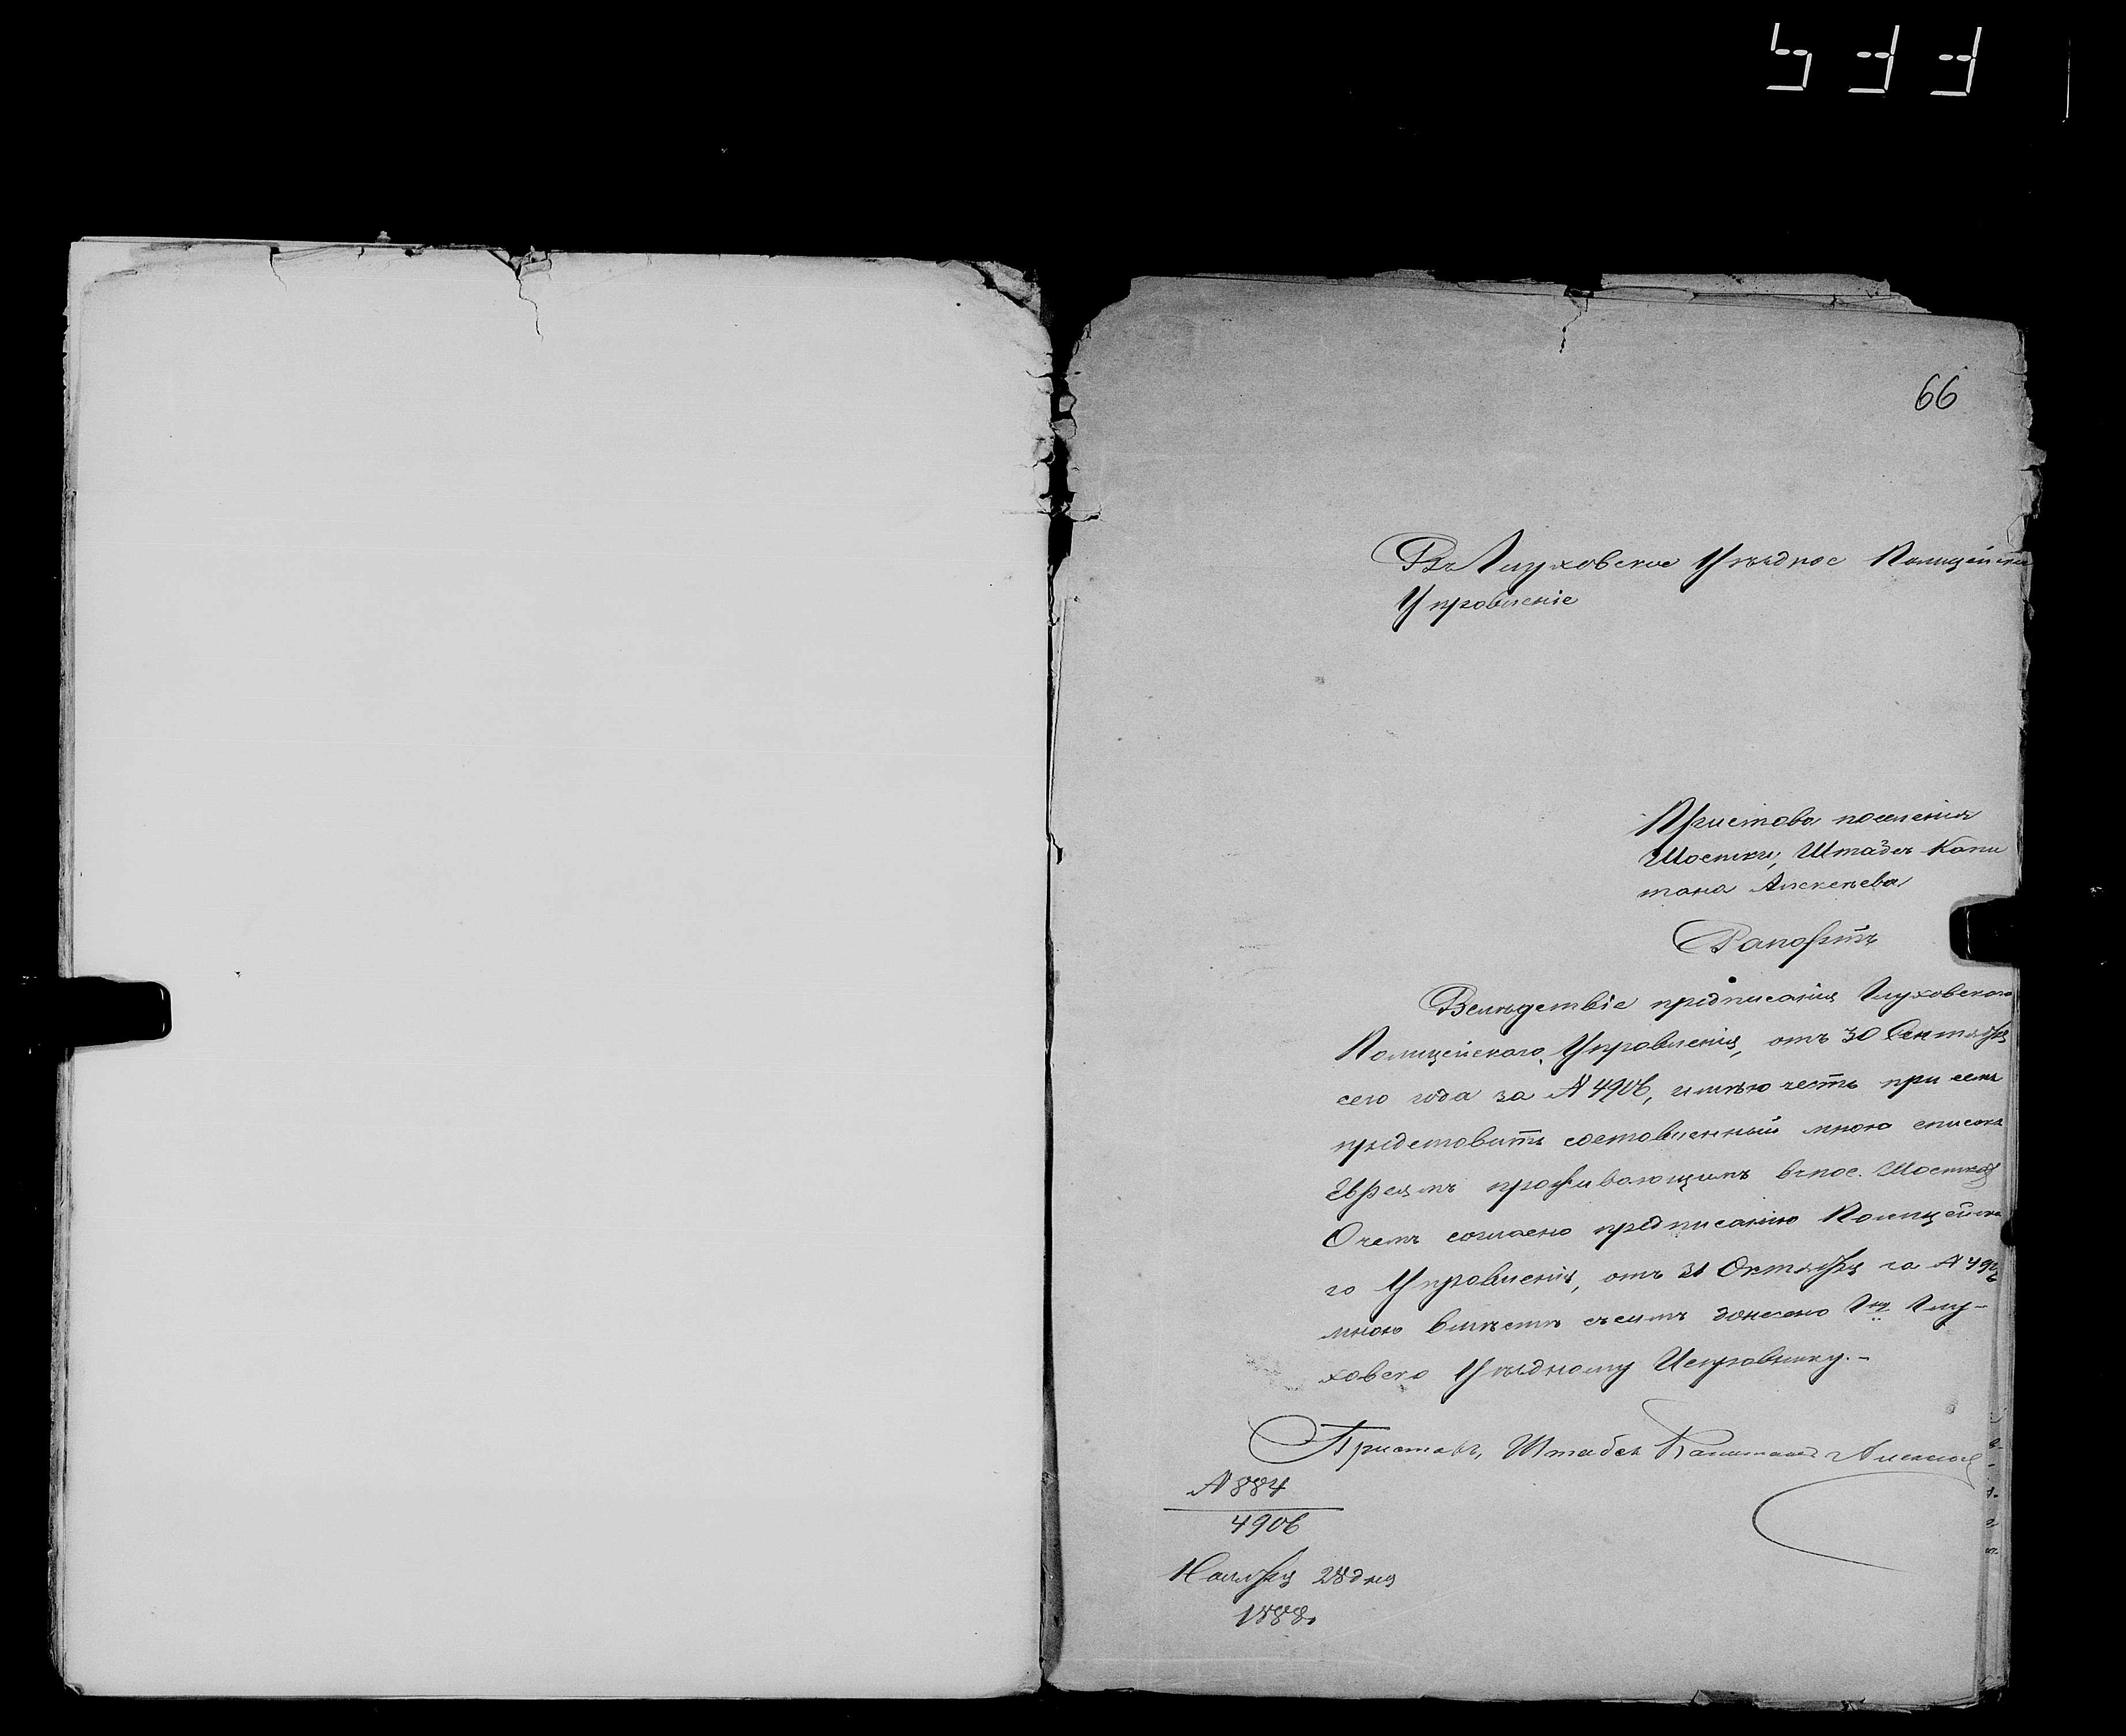 533
66
Въ Глуховское Уѣздное Полицейское
Управленіе
Пристава поселенія
Шостки, Штабсъ Капи
тана Алексѣева
Рапортъ
Вслѣдствіе предписанія Глуховскаго
Полицейскаго Управленія, отъ 30 Сентября
сего года за № 4906, имѣю честь при семъ
представить составленный мною списокъ
Евреямъ проживающимъ въ пос. Шосткѣ
О чемъ согласно предписанію Полицейска
го Управленія, отъ 31 Октября за № 4906
мною вмѣстѣ съ симъ донесено Глу-
ховско Уѣздному Исправнику.-
Приставъ, Штабсъ Капитанъ Алексѣевъ
№ 884
4906
Ноября 28 дня
1888.